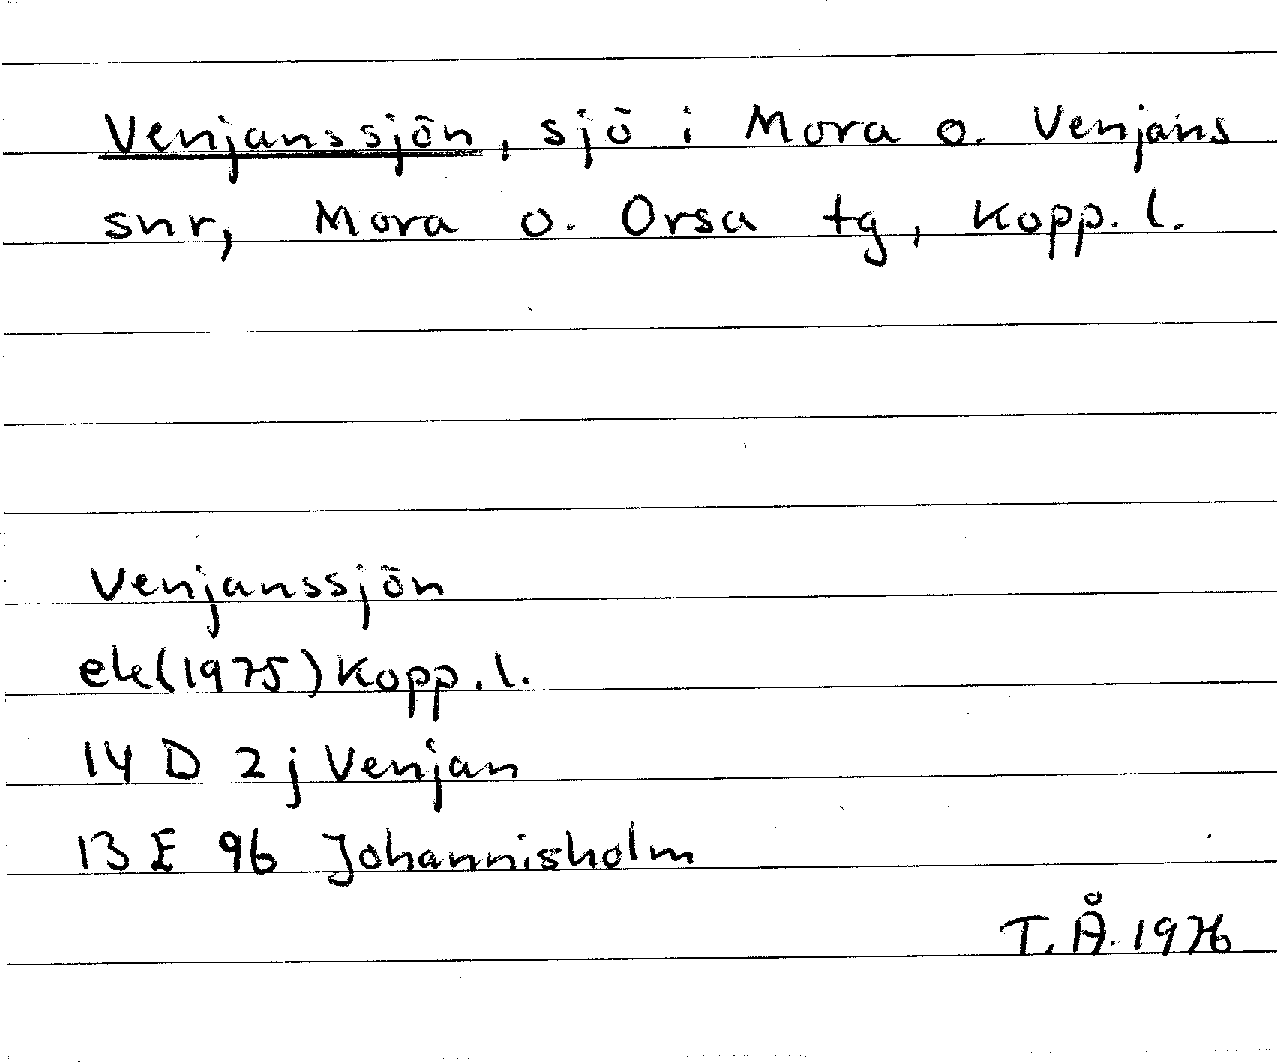 Venjanssjön, sjö i Mora o. Venjans
snr, Mora o. Orsa tg, Kopp. l.
Venjanssjön
ek(1975) Kopp. l.
14 D 2 j Venjan
13 E 9b Johannisholm
T. Å. 1976